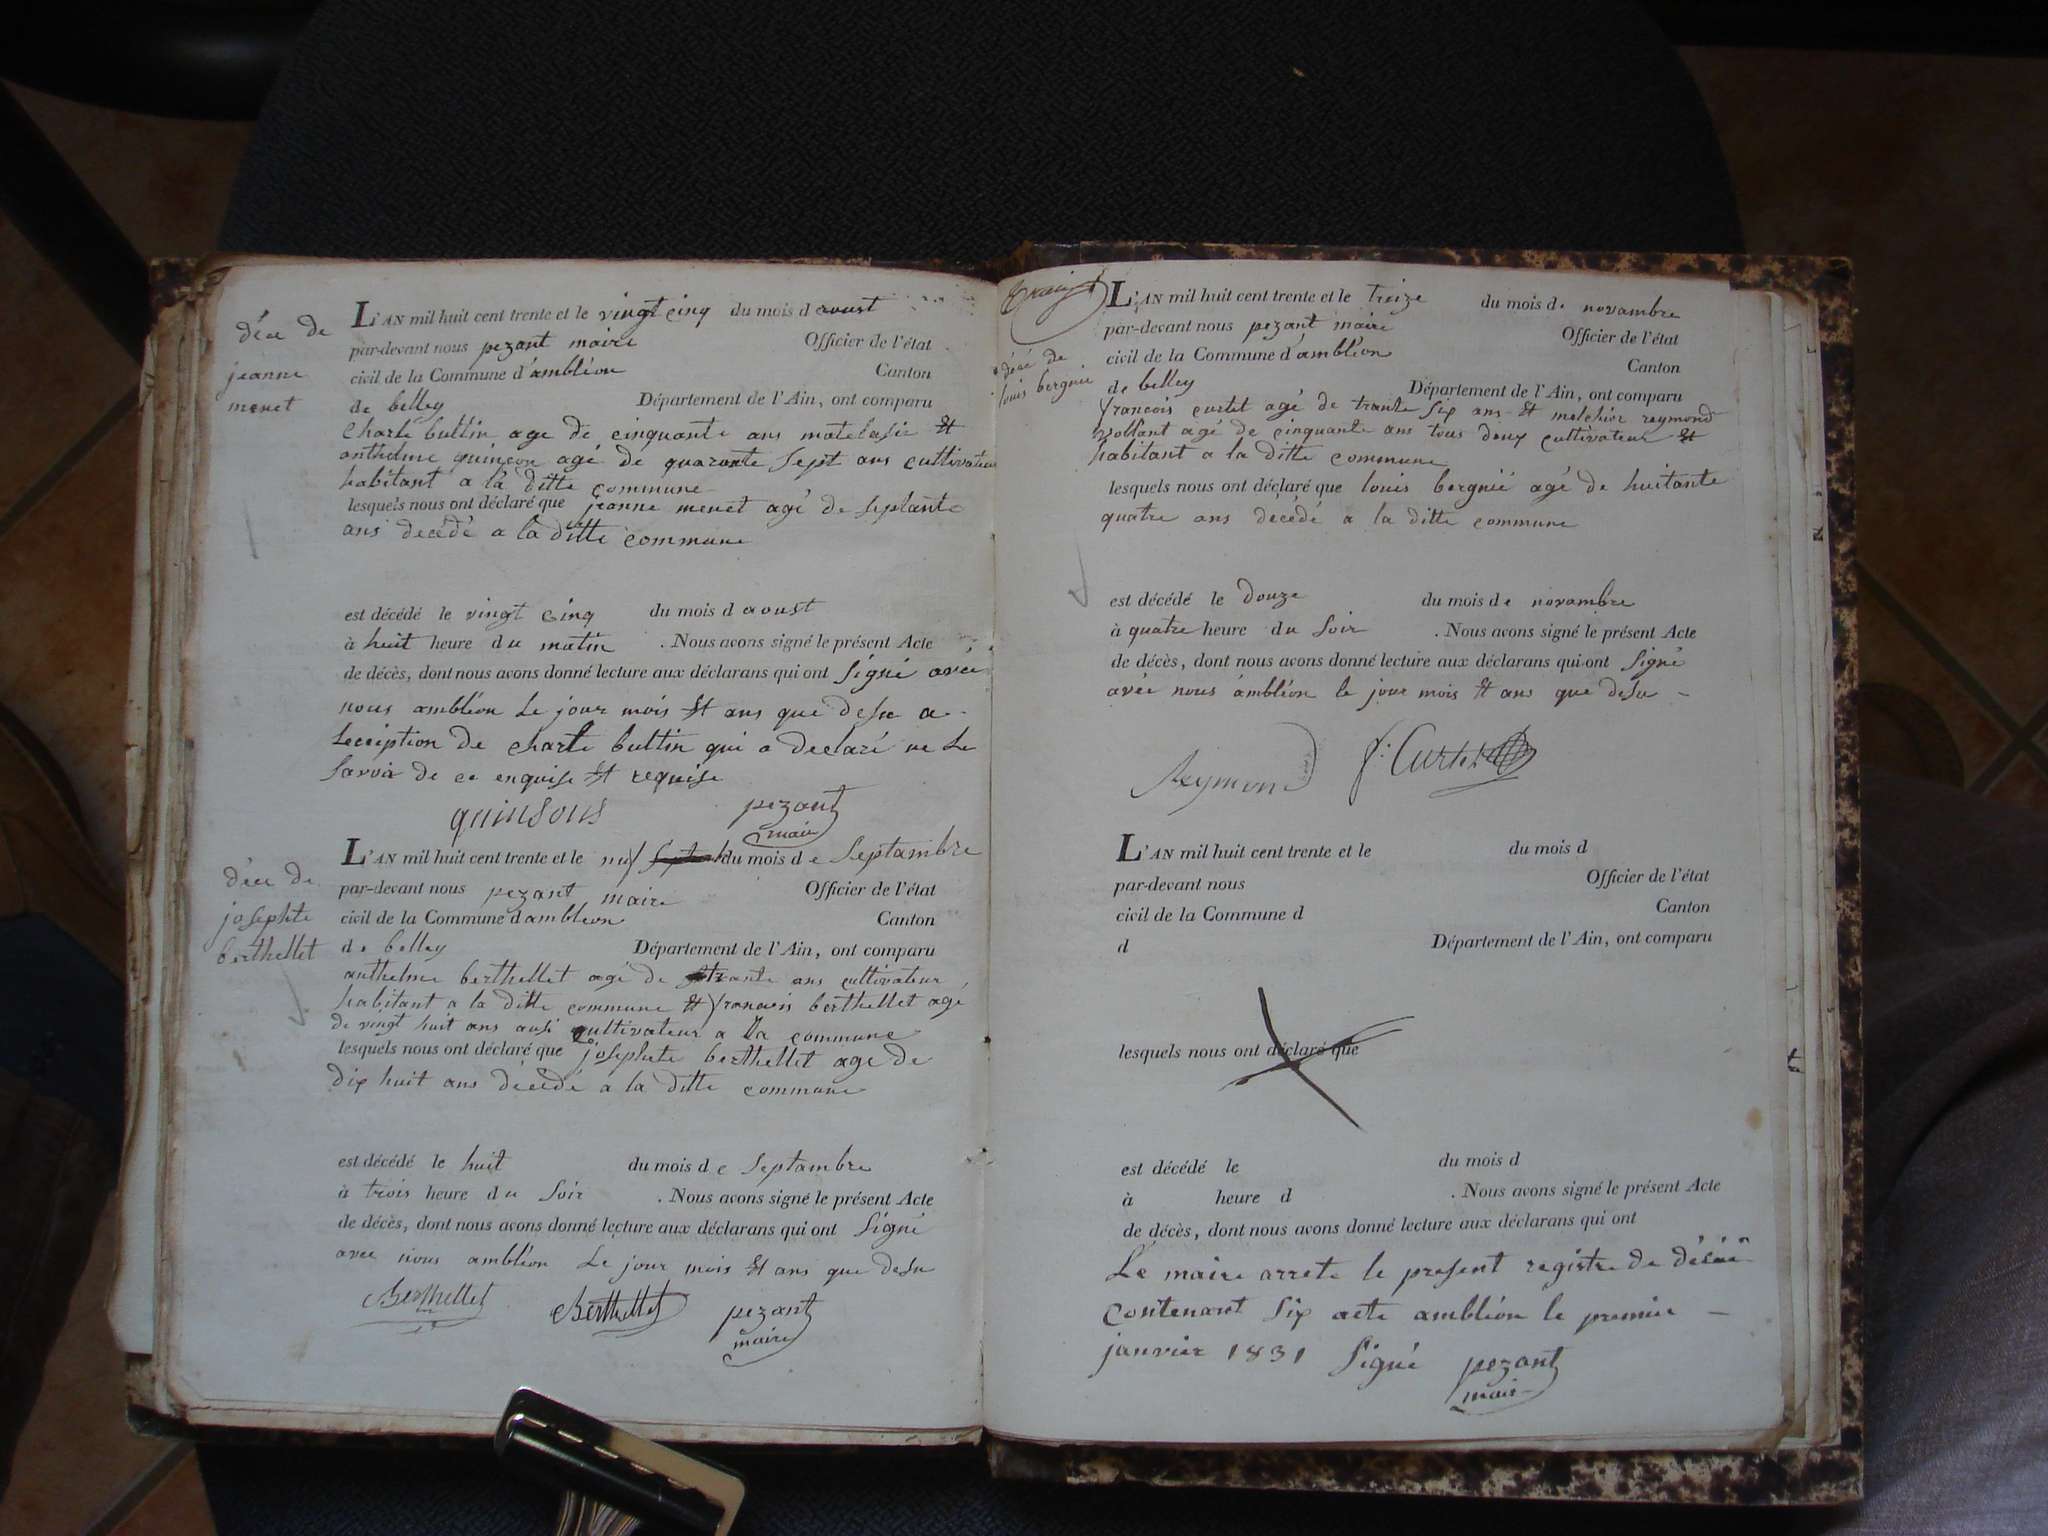 déce de
jeanne
menet
L'AN mil huit cent trente et le vingt cinq du mois d aoust
par-devant nous pezant maire Officier de l'état
civil de la Commune d'ambléon Canton
de belley Département de l'Ain, ont comparu
Charle bultin age de cinquante ans matelasie et
anthelme quinçon agé de quarante sept ans cultivateur
habitant a la ditte commune
lesquels nous ont déclaré que jeanne menet agé de septante
ans décédé a la ditte commune
est décédé le vingt cinq du mois d aoust
à huit heure du matin . Nous avons signé le présent Acte
de décès, dont nous avons donné lecture aux déclarans qui ont signé avec
nous ambléon le jour mois et ans que desu a
lecception de charle bultin qui a declaré ne le
savoir de ce enquise et requise
quinsons pezant
maire
déce de
josephte
berthellet
L'AN mil huit cent trente et le neuf du mois de Septambre
par-devant nous pezant maire Officier de l'état
civil de la Commune d ambléon Canton
de belley Département de l'Ain, ont comparu
anthelme berthellet agé de trante ans cultivateur
habitant a la ditte commune et francois berthellet agé
de vingt huit ans ausi cultivateur a la commune
lesquels nous ont déclaré que josephte berthellet age de
dix huit ans décédé a la ditte commune
est décédé le huit du mois de Septambre
à trois heure du soir . Nous avons signé le présent Acte
de décès, dont nous avons donné lecture aux déclarans qui ont signé
avec nous ambléon le jour mois et ans que desu
Berthellet Berthellet pezant
maire
décé de
louis bergnié
L'AN mil huit cent trente et le treize du mois de novambre
par-devant nous pezant maire Officier de l'état
civil de la Commune d'ambléon Canton
de belley Département de l'Ain, ont comparu
francois curtet agé de trante six ans et melchior reymond
vollant agé de cinquante ans tous deux cultivateur et
habitant a la ditte commune
lesquels nous ont déclaré que louis bergnié agé de huitante
quatre ans decédé a la ditte commune
est décédé le douze du mois de novambre
à quatre heure du soir . Nous avons signé le présent Acte
de décès, dont nous avons donné lecture aux déclarans qui ont signé
avéc nous ambléon le jour mois et ans que desu
Reymond f. Curtet
L'AN mil huit cent trente et le du mois d
par-devant nous Officier de l'état
civil de la Commune d Canton
d Département de l'Ain, ont comparu
lesquels nous ont déclaré que
est décédé le du mois d
à heure d . Nous avons signé le présent Acte
de décès, dont nous avons donné lecture aux déclarans qui ont
Le maire arrete le present registre de déséé
contenant six acte ambléon le premier
janvier 1831 Signé pezant
maire